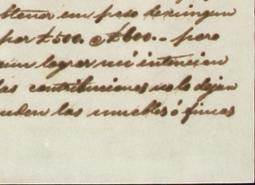 obtener un peso de ningun
por £500. o £600. - pero
sin lograr mi intencion
las contribuciones no lo dejan
venden los muebles ó fincas